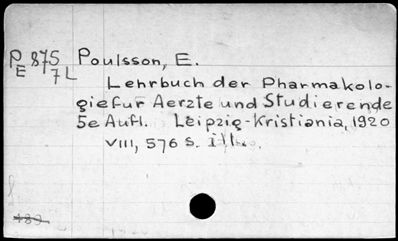 PE 875 7L
Poulsson, E.
Lehrbuch der Pharmakolo-
gie fur Aerzte und Studierende
5e Aufl. Leipzig-Kristiania, 1920
VIII, 576 S. Ill.